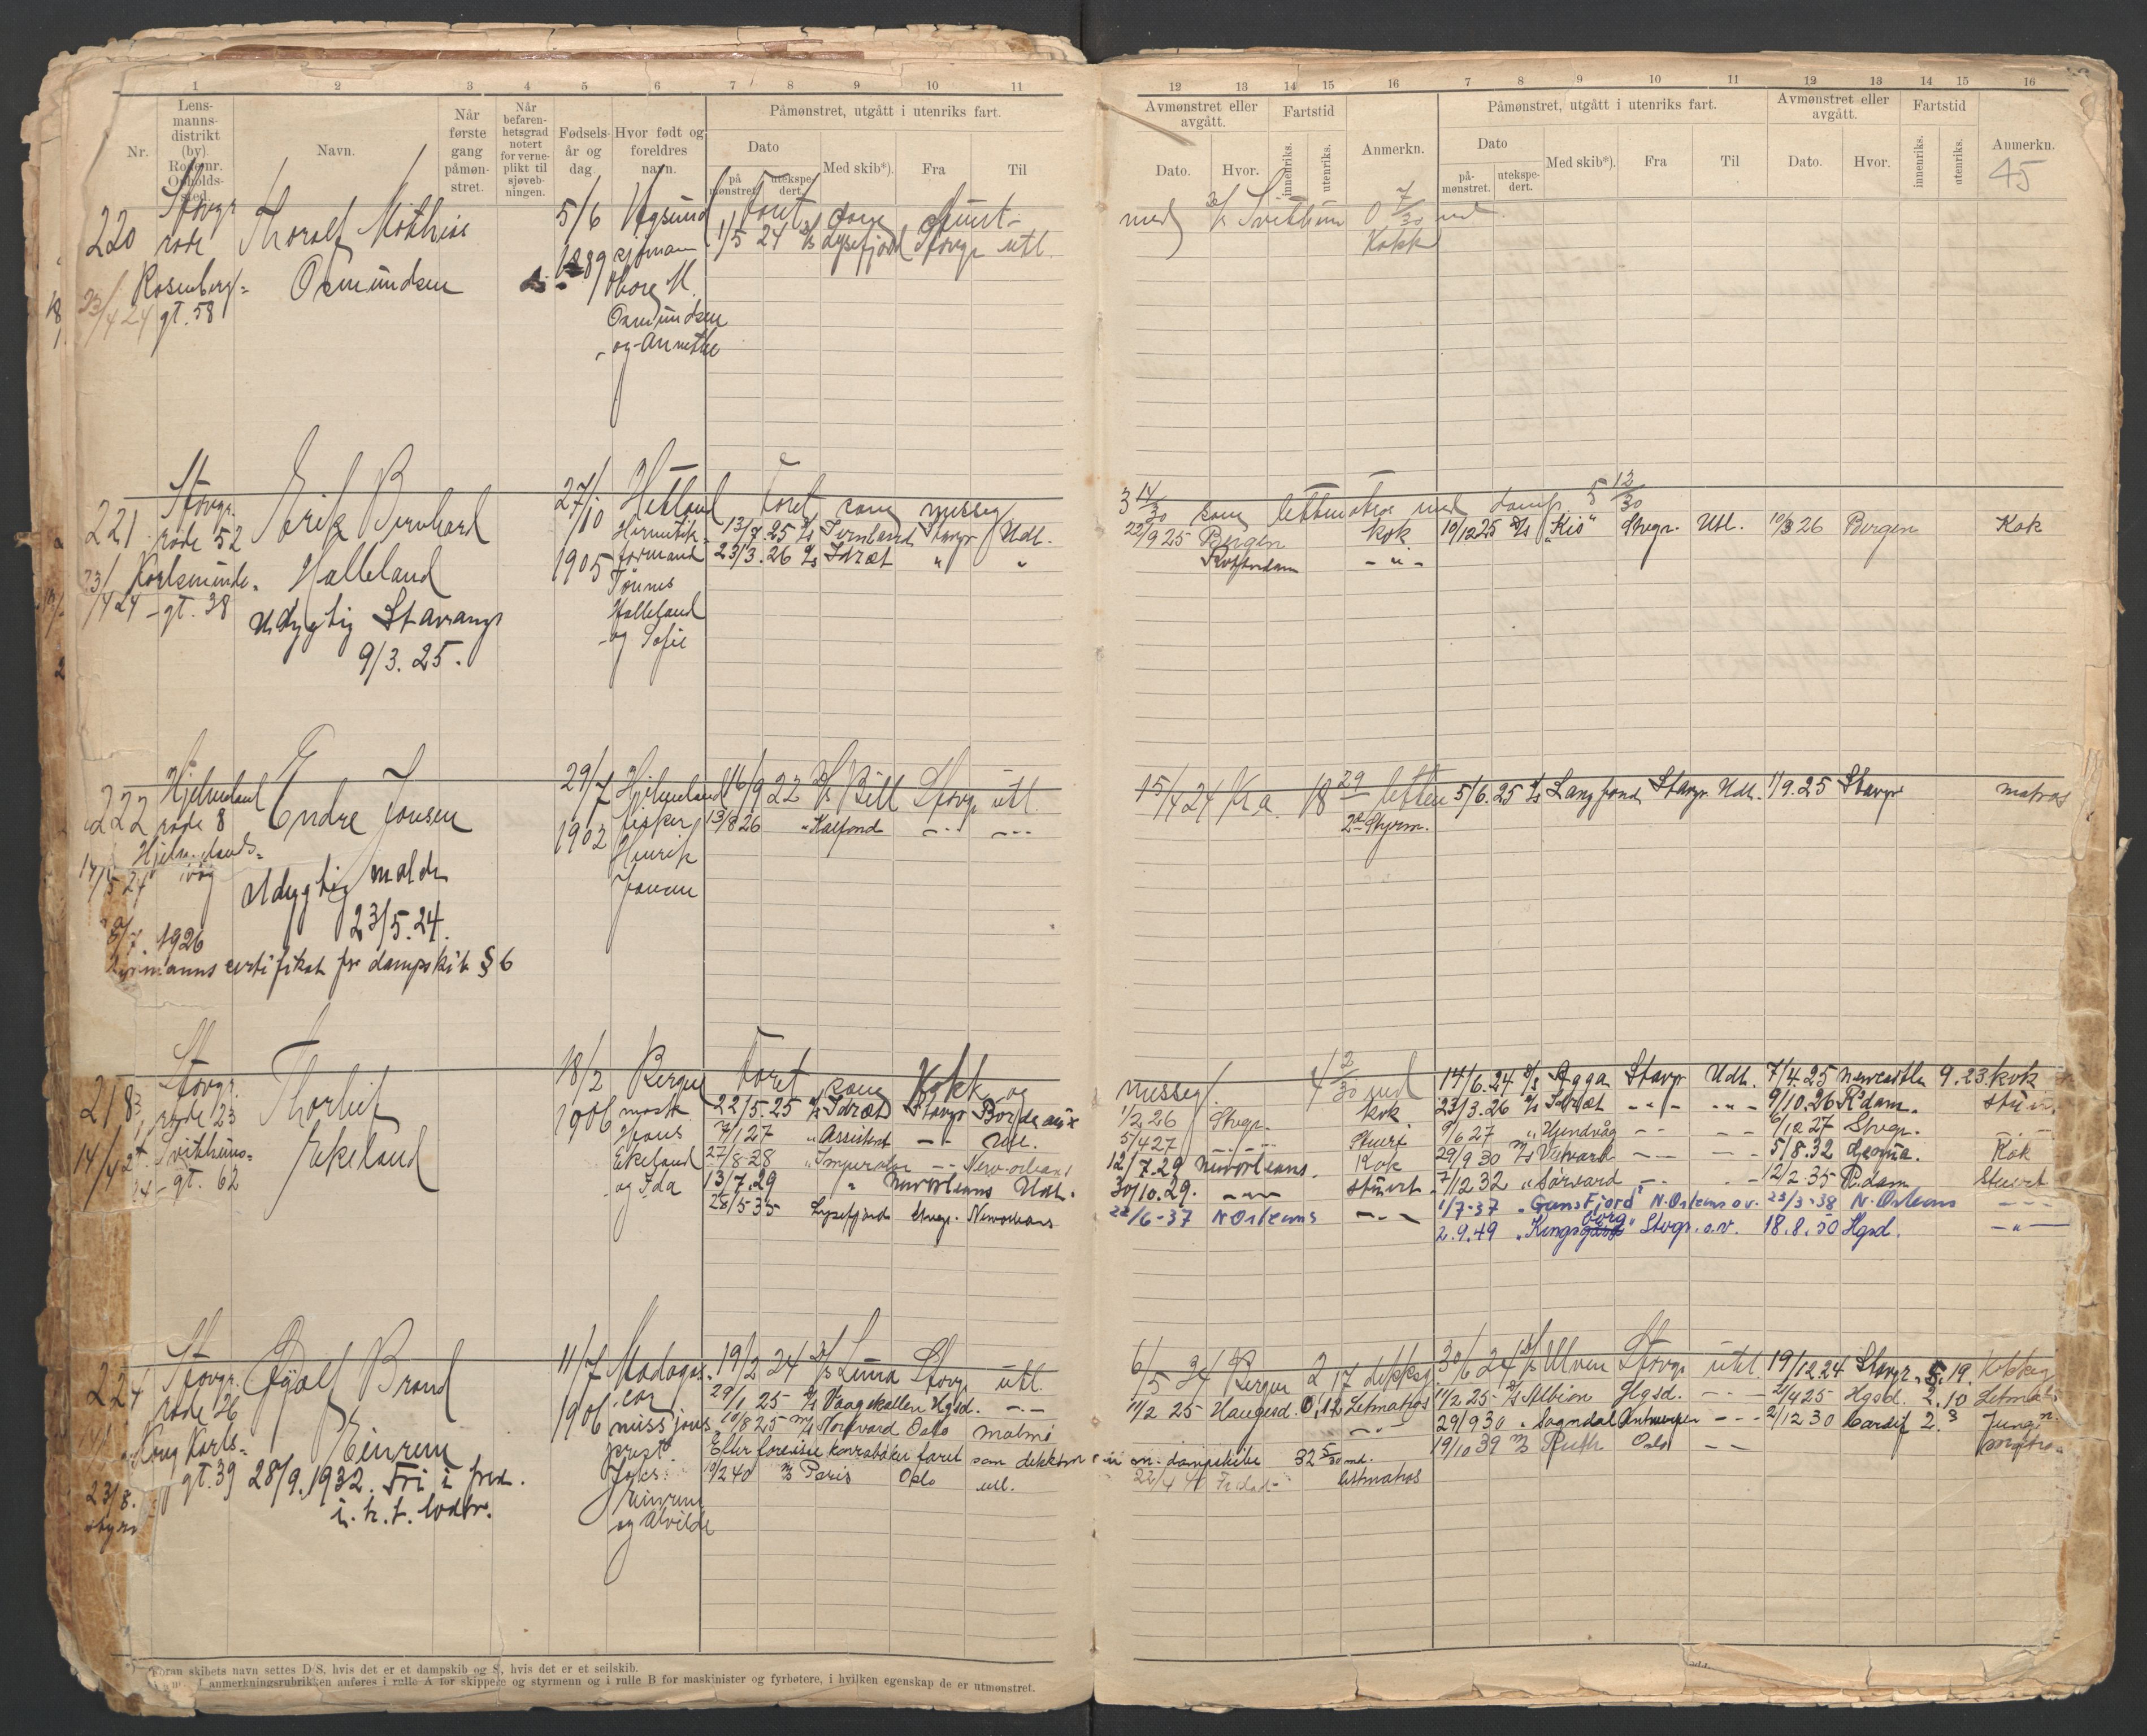 1 2 3 4 5 6 7 8 9 10 11
Nr.
Lens-
manns-
distrikt
(by).
Rodenr.
Opholds-
sted.
Navn.
Når
første
gang
påmøn-
stret.
Når
befaren-
hetsgrad
notert
for verne-
plikt til
sjøveb-
ningen.
Fødsels-
år og
dag
Hvor født og
foreldres
navn.
Påmønstret, utgått i utenriks fart.
Dato
på
mønstret
utekspe-
dert.
Med skib*).
Fra
Til
220
Stavgr
rode
Rosenberg-
gt. 58
23/4 24
Thoralf Mathias
Osmundsen
5/6
1889
sjømann
Osmundsen
og Annette
faret som
1/5 24 D/S Lysefjord Stavgr utl.
221
Stavgr.
rode 52
Karlsminde-
gt. 38
23/4 24
Erik Bernhard
Halleland
Udygtig Stavang
9/3. 25.
27/10
1905
Hetland
Hermetik-
formand
Tønnes
Halleland
og Sofie
Faret som messeg
13/7. 25 D/s Jernland Stavgr Udl.
23/3. 26 D/s Idræt " "
222
Hjelmeland
rode 8
Hjelmelands-
våg
14/5 24
Endre Jonsen
Udygtig molde
23/5. 24.
8/7. 1926
certifikat for dampskib § 6
29/7
1903
Hjelmeland
fisker
Henrik
Jonsen
16/9 22 D/S Bill Stavgr utl.
13/8 26 " Kalfond - - - - -
218
Stavgr.
rode 23
Svithuns-
gt. 62
14/4 24
Thorleif
Ekeland
18/2
1906
Bergen
mask
Hans
Ekeland
og Ida
Faret som Kokk og
22/5. 25 D/s Idræt Stavgr Bordeaux
7/1 27 " Assistent - - Utl.
27/8-28 " Imperator - - New-orleans
13/7. 29 " Neworleans Udl.
28/5 35 Lysefjord Stvgr. Neworleans
224
Stavgr.
rode 26
Kong Karls-
gt. 39
Eyolf Brand
Einrem
28/9. 1932. Fri i fred.
i. h. t. lodtr.
23/8.
11/7
1906
Madagas-
car
missjons
prest
Jaks.
Einrem
og Alvilde
19/2 24 D/S Luna Stavg utl.
29/1 25 D/s Vaagekallen Hgsd. - -
10/8 25 M/s Nordvard Oslo Malmø
Efter forevise hovedbøker faret som dekksm. en dampskibe 32 5/30 md.
19/2 40 M/s Paris Oslo utl.
Foran skibets navn settes D/S, hvis det er et dampskib og S, hvis det er et seilskib.
I anmerkningsrubrikken anføres i rulle A for skippere og styrmenn og i rulle B for maskinister og fyrbøtere, i hvilken egenskap de er utmønstret.
12 13 14 15 16 7 8 9 10 11 12 13 14 15 16
Avmønstret eller
avgått.
Dato.
Hvor.
Fartstid
innenriks.
utenriks.
Anmerkn.
Påmønstret, utgått i utenriks fart.
Dato
på-
mønstret.
utekspe-
dert.
Med skib*).
Fra
Til
Avmønstret eller
avgått.
Dato.
Hvor.
Fartstid
innenriks.
utenriks.
Anmerkn.
45
med D/S Svithun 0 7/30 md.
Kokk
3 14/30 som lettmatros med damp. 5 12/30
22/9 25 Bergen kok 10/12 25 D/s "Kis" Stvgr. Utl. 10/3 26 Bergen Kok
Rotterdam - " -
15/4 24 Kra 18 29 lettm 5/6. 25 D/s Langfond Stavgr Udl. 1/9. 25 Stavgr matros
2den Styrm.
messeg. 4 2/30 md 14/6. 24 D/s Agga Stavgr Udl. 7/4. 25 Newcastle 9. 23. kok
1/2 26 Stvgr. kok 23/3. 26 D/s Idræt - " - - " - 9/10. 26 R'dam.
5/4 27 - - - Stuert 9/6 27 " Hjendvåg - - - - 9/12 27 Stvgr. - -
12/7. 29 Neworleans. Kok 29/9 30 M/s Vestvard - - - - 5/8. 32 Kok
30/10. 29. - " - stuert 7/12 32 " Sørvard - - - - 12/2. 35 R.dam Stuert
22/6 - 37 N Orleans - " - 1/7-37 " Gansfjord" N. Orleans o.v. 23/3-38 N. Orleans - -
2. 9. 49 "Kingsborg" Stvgr. o.v. 18. 8. 50 Hgsd. - " -
6/5 24 Bergen 2 17 dekksg. 30/6 24 D/S Ulven Stavgr utl. 19/12 24 Stavgr. 5. 19.
11/2 25 Haugesd. 0. 12 Letmatros 11/2 25 D/s Albion Hgsd. - - - 2/4 25 Hgsd. 2. 10 Letmatr
- " - 29/9 30 " Sogndal Antwerpen - - - 2/12 30 Cardif 2. 3 Jungm.
19/10 39 M/s Ruth Oslo - -
22/4 41 lettmatros